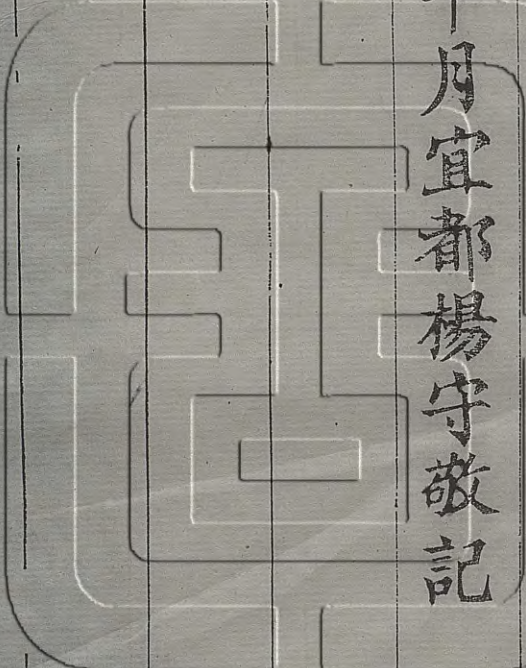 月宜都楊守敬記